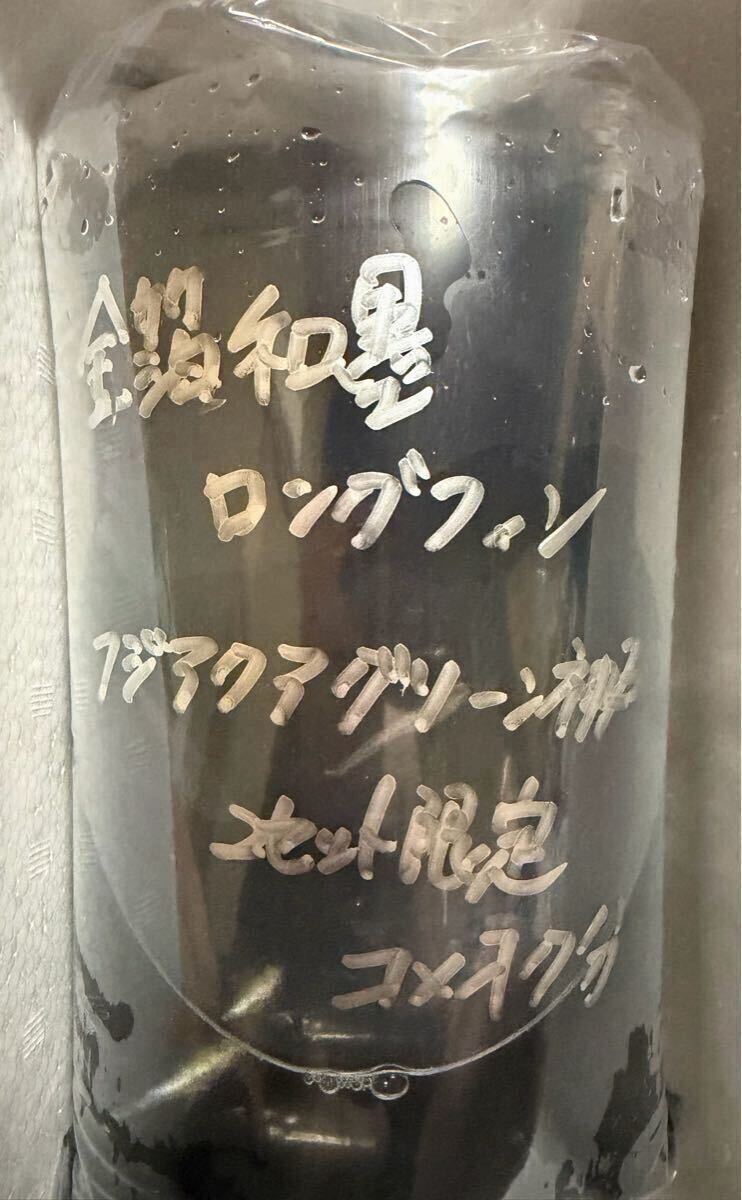 金箔和墨
ロングフィン
フジアクアグリーン
セット限定
コメオク分